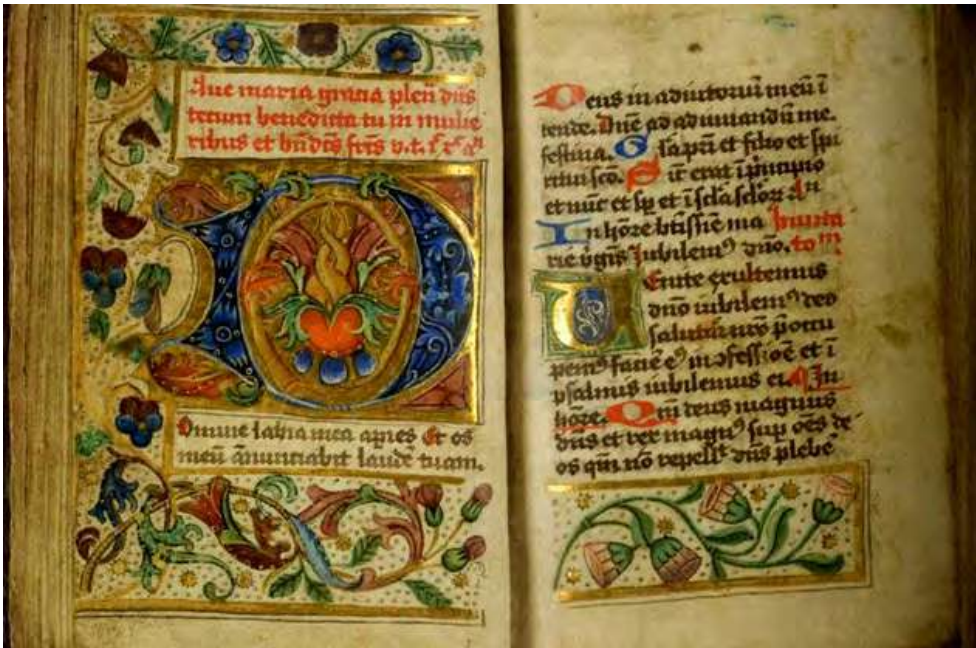 Aue maria gracia plen dns
tecum benedicta tu in mulie
ribus et bndcs
Domine labia mea apies Et os
meu anunciabit laude tuam.
Deus in adiutoriu meu i
tende. Dne ad adiuuandu me.
festina. Gla pri et filio et spi
ritui sco. Sic erat i principio
et nuc et sp et i scla sclor
In hore btissie ma
rie vgis Jubilem9 dno.
Venite exultemus
dno iubilem9 deo
salutari nro pocu
pem9 facie e9 in ofessioe et i
psalmis iubilemus ei. In
hore. Qm deus magnus
dns et rex magn9 sup oes de
os qm no repellt dns plebe